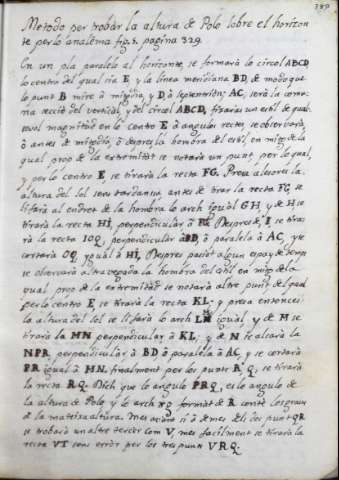 389
Metodo per trobar la altura de Polo sobre el horizon
te per lo analema fig. 5. pagina 329.
En un pla paralelo al horizonte, se formarà lo circol ABCD,
lo centro del qual sia E, y la linea meridiana BD, de modo que
lo punt B mire à migdia, y D, à septentrion; AC, serà la comu-
na secciò del vertical, y del circol ABCD, fixarias un estil de qual-
sevol magnitud en lo centro E à angulos rectes, se observarà,
ò antes de mitgdia, ò despres la hombra del estil, en mitg de la
qual prop de la extremitat se notarà un punt, per lo qual,
y per lo centro E, se tirarà la recta FG. Preu aleores la
altura del sol sens tardansa, antes de tirar la recta FG, se
lisarà al endret de la hombra lo arch igual GH, y de H se
tirarà la recta HI, perpendicular à FG. Despres de I, se tira-
rà la recta IOQ, perpendicular à BD, ò paralela à AC, y se
cortarà OQ, igual à HI. Despres pasat algun espay de temps
se observarà altra vegada la hombra del estil en mitg de la
qual prop de la extremitat se notarà altre punt, del qual
per lo centro E, se tirarà la recta KL, y presa entonces
la altura del sol se lisarà lo arch LM igual, y de M se
tirarà la MN perpendicular à KL, y de N se alsarà la
NPR, perpendicular, à BD ò paralela à AC, y se cortarà
PR igual à MN, finalment per los punts R, Q, se tirarà
la recta RQ. Dich que lo angulo PRQ, es lo angulo de
la altura de Polo, y lo arch xg format de R contè los graus
de la mateixa altura. mes aviat si à demes dels dos punts QR
se trobarà un altre tercer com V, mes facilment se tirarà la
recta VT sens error per los tres punts VRQ.